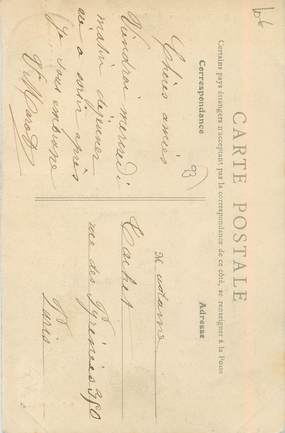 CARTE POSTALE
Certains pays étrangers n'acceptant pas la correspondance de ce côté, se renseigner à la Poste
Correspondance
Adresse
Chères amies
Viendrai mercredi
matin déjeuner
après
Je vous embrasse
Madame
Cachet
rue des Pyrénées 350
Paris